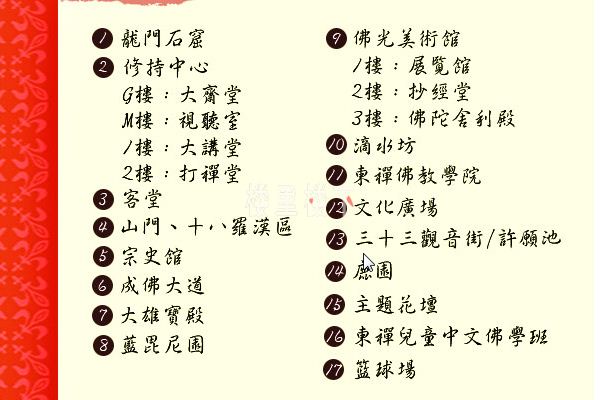 1 龍門石窟
2 修持中心
G樓：大齋堂
M樓：視聽室
1樓：大講堂
2樓：打禪堂
3 客堂
4 山門、十八羅漢區
5 宗史館
6 成佛大道
7 大雄寶殿
8 藍毘尼園
9 佛光美術館
1樓：展覽館
2樓：抄經堂
3樓：佛陀舍利殿
10 滴水坊
11 東禪佛教學院
12 文化廣場
13 三十三觀音街/許願池
14 園
15 主題花壇
16 東禪兒童中文佛學班
17 籃球場